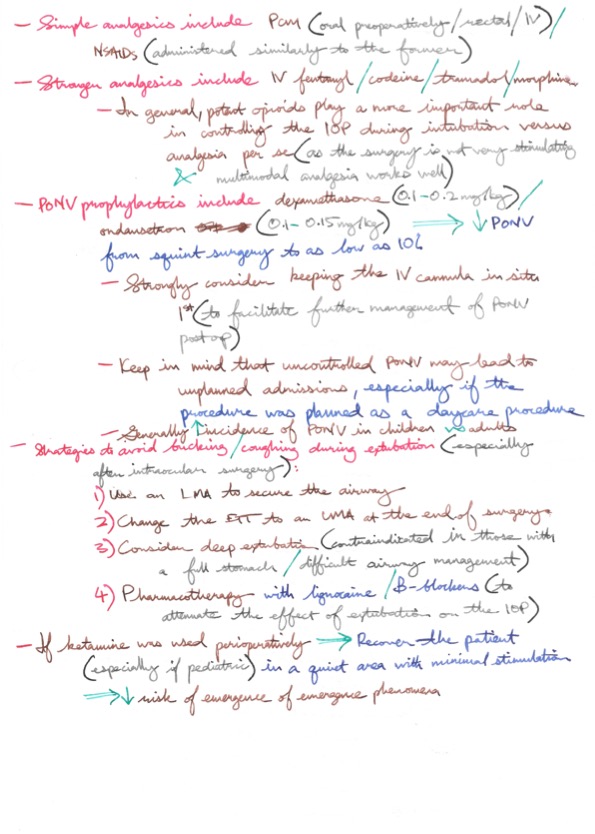 — Simple analgesics include PCM (oral preoperatively/rectal/IV)/
NSAIDs (administered similarly to the former)
— Stronger analgesics include IV fentanyl/codeine/tramadol/morphine
— In general, potent opioids play a more important role
in controlling the IOP during intubation versus
analgesia per se (as the surgery is not very stimulating
& multimodal analgesia works well)
— PONV prophylactics include dexamethasone (0.1-0.2mg/kg)/
ondansetron (0.1-0.15mg/kg) ⟹ ↓ PONV
from squint surgery to as low as 10%
— Strongly consider keeping the IV cannula in situ
1st (to facilitate further management of PONV
post op)
— Keep in mind that uncontrolled PONV may lead to
unplanned admissions, especially if the
procedure was planned as a daycare procedure
— Generally ↑ incidence of PONV in children vs adults
— Strategies to avoid bucking/coughing during extubation (especially
after intraocular surgery):
1) Use an LMA to secure the airway
2) Change the ETT to an LMA at the end of surgery
3) Consider deep extubation (contraindicated in those with
a full stomach/difficult airway management)
4) Pharmacotherapy with lignocaine/B-blockers (to
attenuate the effect of extubation on the IOP)
— If ketamine was used perioperatively ⟹ Recover the patient
(especially if pediatric) in a quiet area with minimal stimulation
⟹ ↓ risk of emergence of emergence phenomena